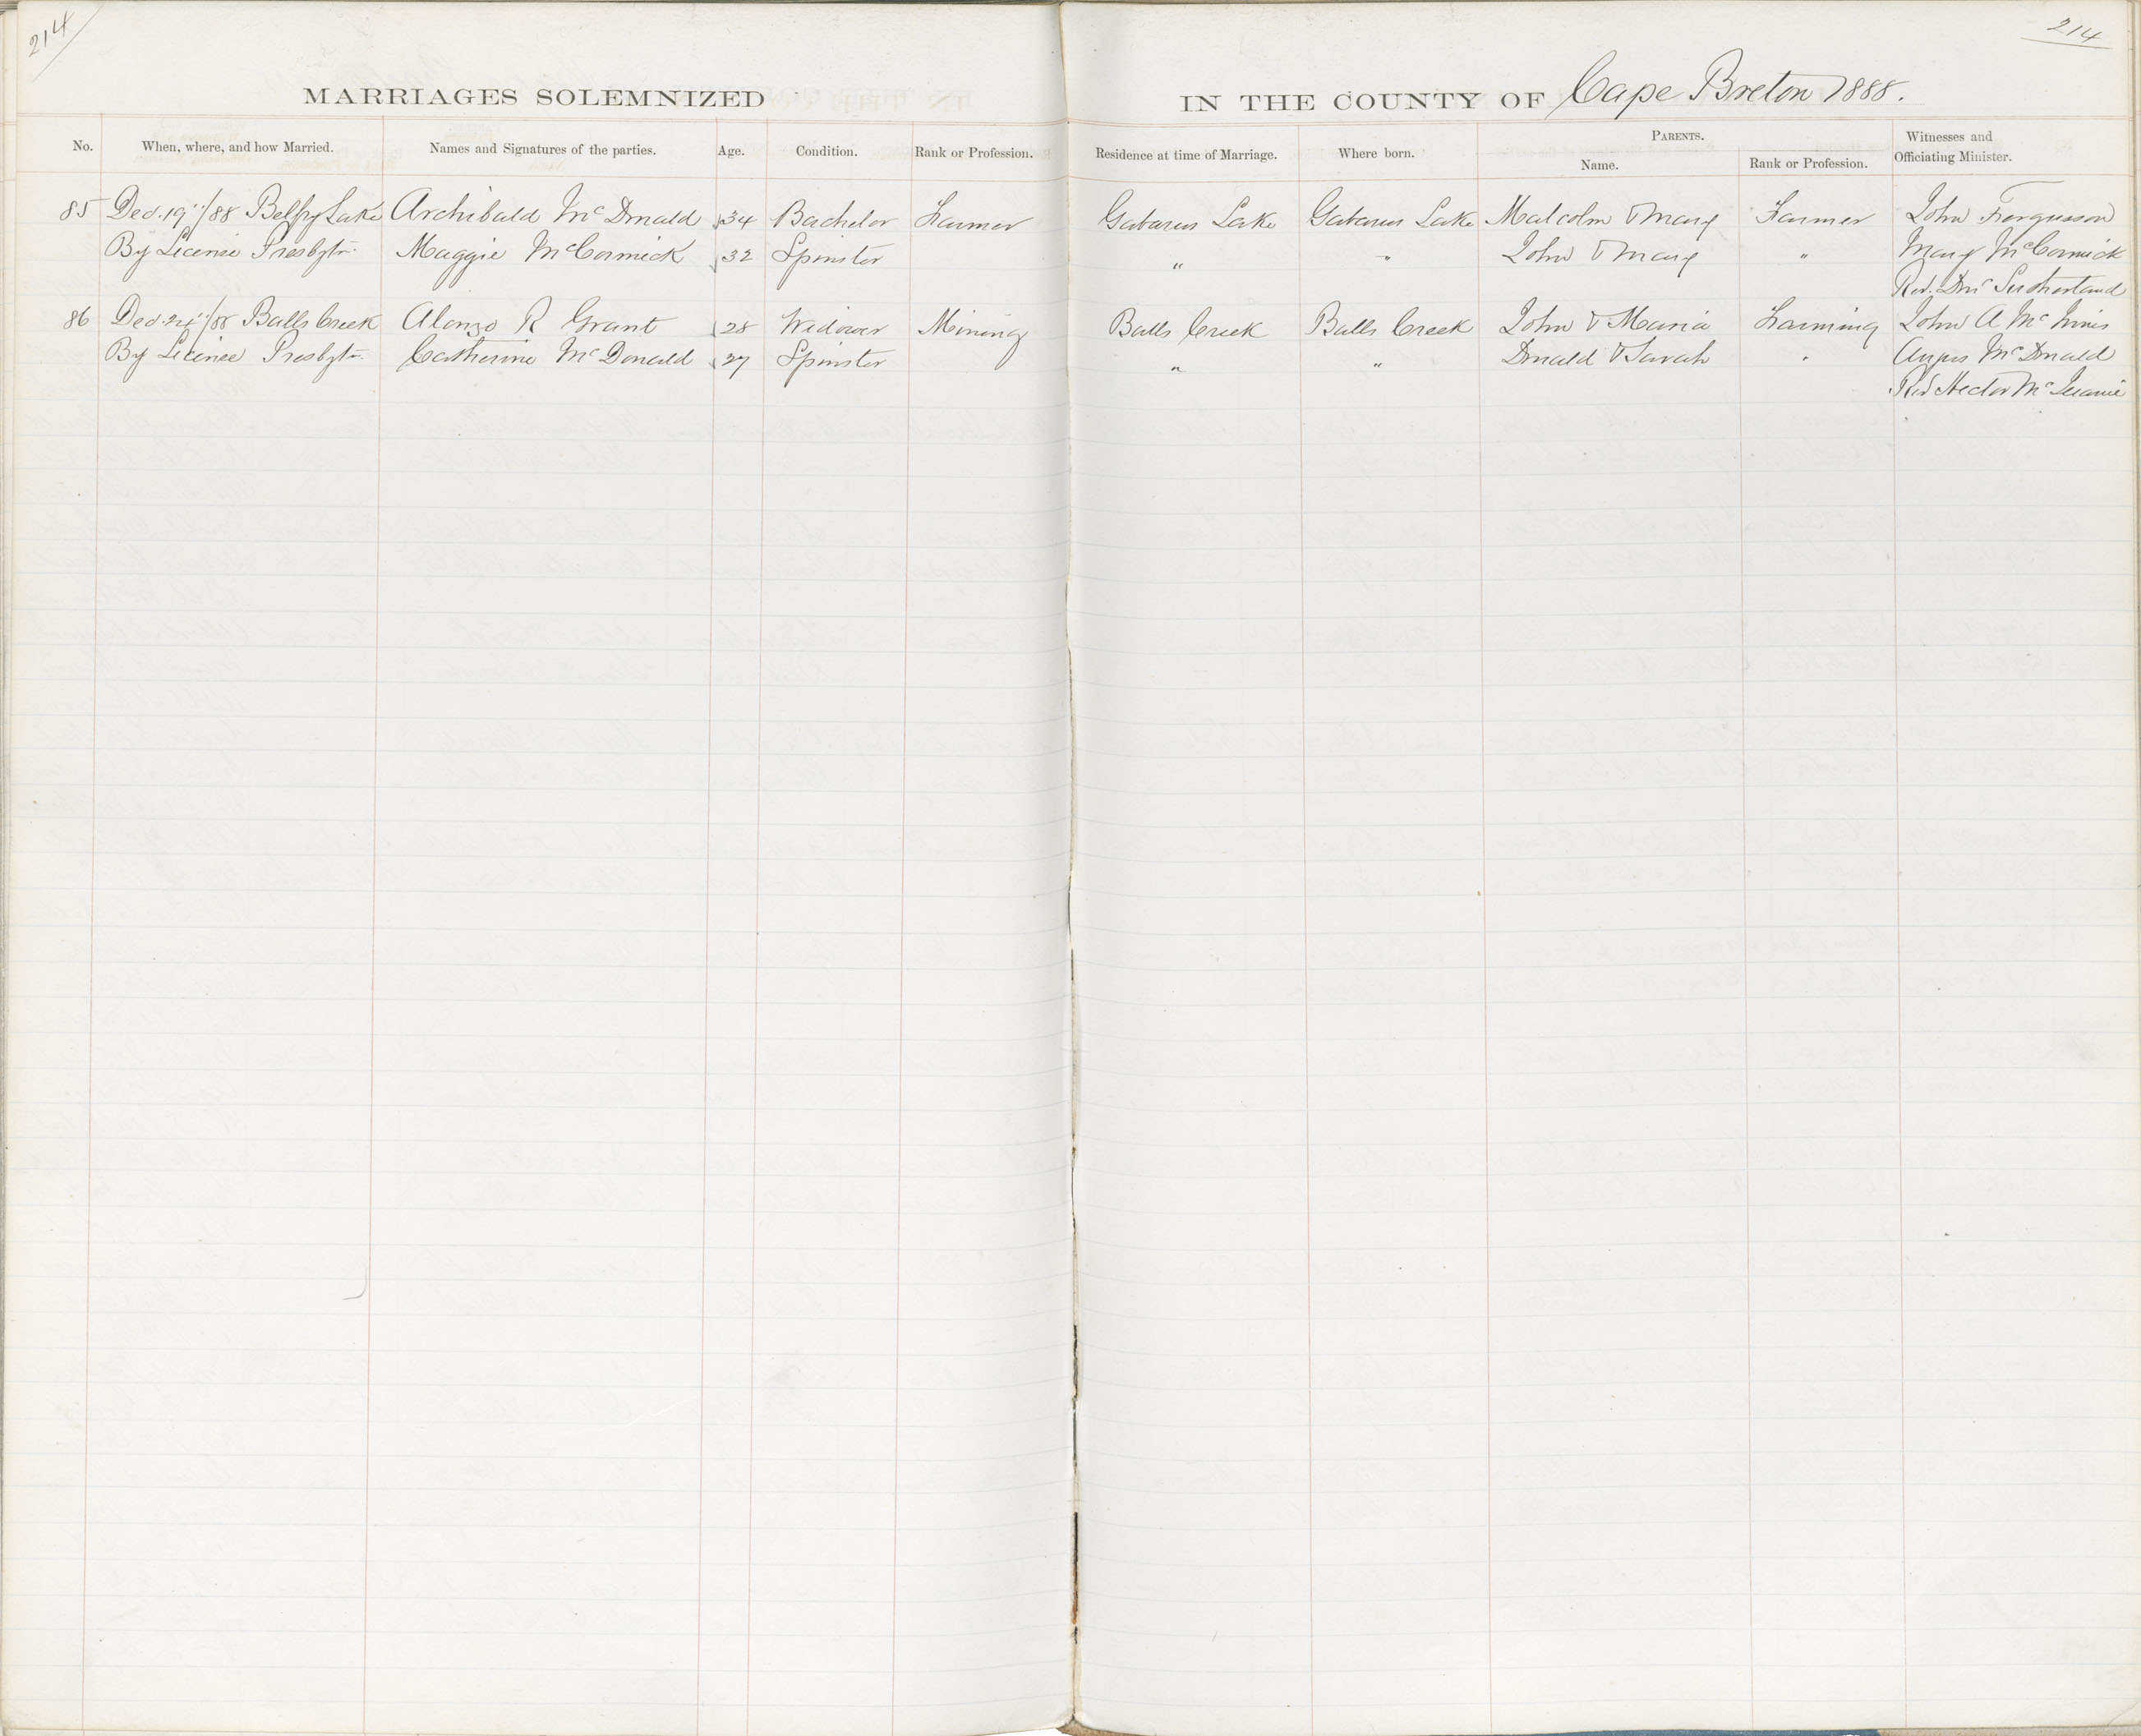 214
214
MARRIAGES SOLEMNIZED
IN THE COUNTY OF Cape Breton 1888.
No. When, where, and how Married. Names and Signatures of the parties. Age. Condition. Rank or Profession. Residence at time of Marriage. Where born. PARENTS. Name. Rank or Profession. Witnesses and Officiating Minister.
85 Dec. 19"/88 Belfry Lake Archibald McDonald 34 Bachelor Farmer Gabarus Lake Gabarus Lake Malcolm & Mary Farmer John Fergusson
By License Presbytn. Maggie McCormick 32 Spinster " " John & Mary " Mary McCormick
Rev. Sutherland
86 Dec. 24"/88 Balls Creek Alonzo R Grant 28 Widower Mining Balls Creek Balls Creek John & Maria Farming John A McInnis
By License Presbytn. Catherine McDonald 27 Spinster " " Donald & Sarah " Angus McDonald
Rev Hector